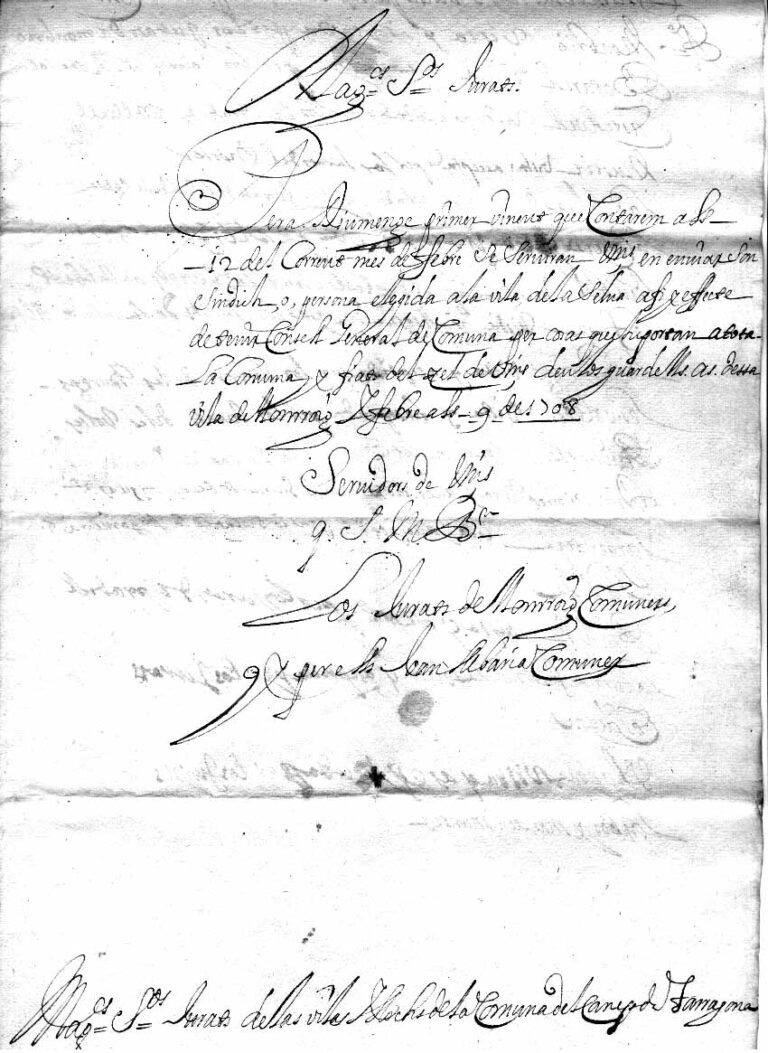 Magcs Srs Jurats.
Pera Diumenge primer vinent que Contarem als
12 del Corrent mes de febre Se Serviran Vms en enviar Son
Sindich, o, persona elegida a la vila de la Selva a fi y effecte
de tenir Consell General de Comuna per cosas que Importan a tota
La Comuna, y fiats del zel de Vms deu los guarde Ms. as. desta
vila de Monrroig y febre als 9 de 1708
Servidors de Vms
q. S. M. B.
Los Jurats de Monrroig Comuners,
y per ells Joan Comuner
Magcs Srs Jurats de las vilas y llochs de la Comuna del Camp de Tarragona